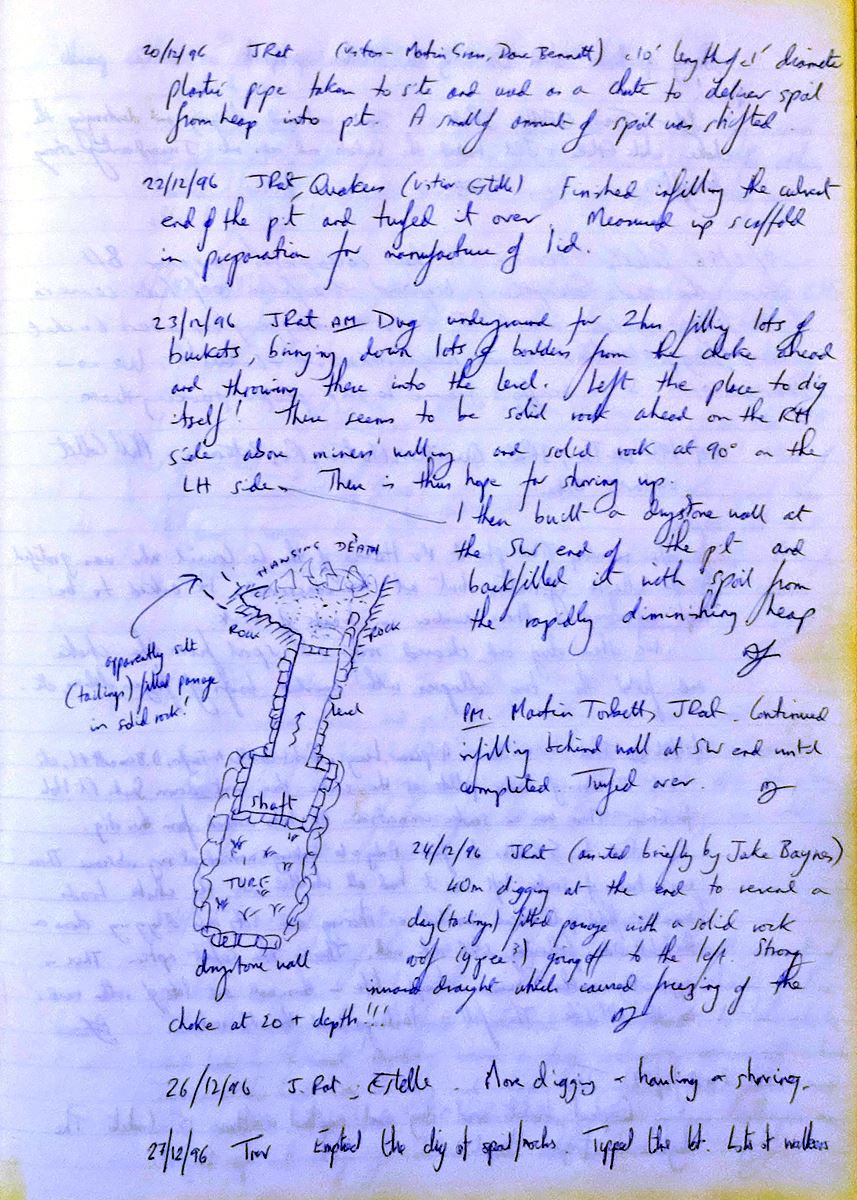 20/12/96 JRat (Visitors - Martin Grass, Dave Bennett) 10' length of 1' diameter
plastic pipe taken to site and used as a chute to deliver spoil
from heap into pit. A small amount of spoil was shifted.
22/12/96 JRat, Quackers (visitor Estelle) Finished infilling the culvert
end of the pit and turfed it over. Measured up scaffold
in preparation for manufacture of lid.
23/12/96 JRat AM Dug underground for 2hrs, filling lots of
buckets, bringing down lots of boulders from the choke ahead
and throwing these into the level. Left the place to dig
itself! There seems to be solid rock ahead on the RH
side above miners' walling and solid rock at 90° on the
LH side. There is thus hope for shoring up.
I then built a drystone wall at
the SW end of the pit and
backfilled it with spoil from
the rapidly diminishing heap
HANGING DEATH
ROCK
ROCK
apparently silt
(tailings) filled passage
in solid rock!
level
shaft
TURF
drystone wall
PM. Martin Torbett, JRat. Continued
infilling behind wall at SW end until
completed. Turfed over.
24/12/96 JRat (assisted briefly by Jake Baynes)
40m digging at the end to reveal a
clay (tailings) filled passage with a solid rock
roof going off to the left. Strong
inward draught which caused freezing of the
choke at 20 + depth!!!
26/12/96 J.Rat, Estelle. More digging + hauling + shoring.
27/12/96 Trev Emptied the dig of spoil/rocks. Tipped the lot. Lots of walkers